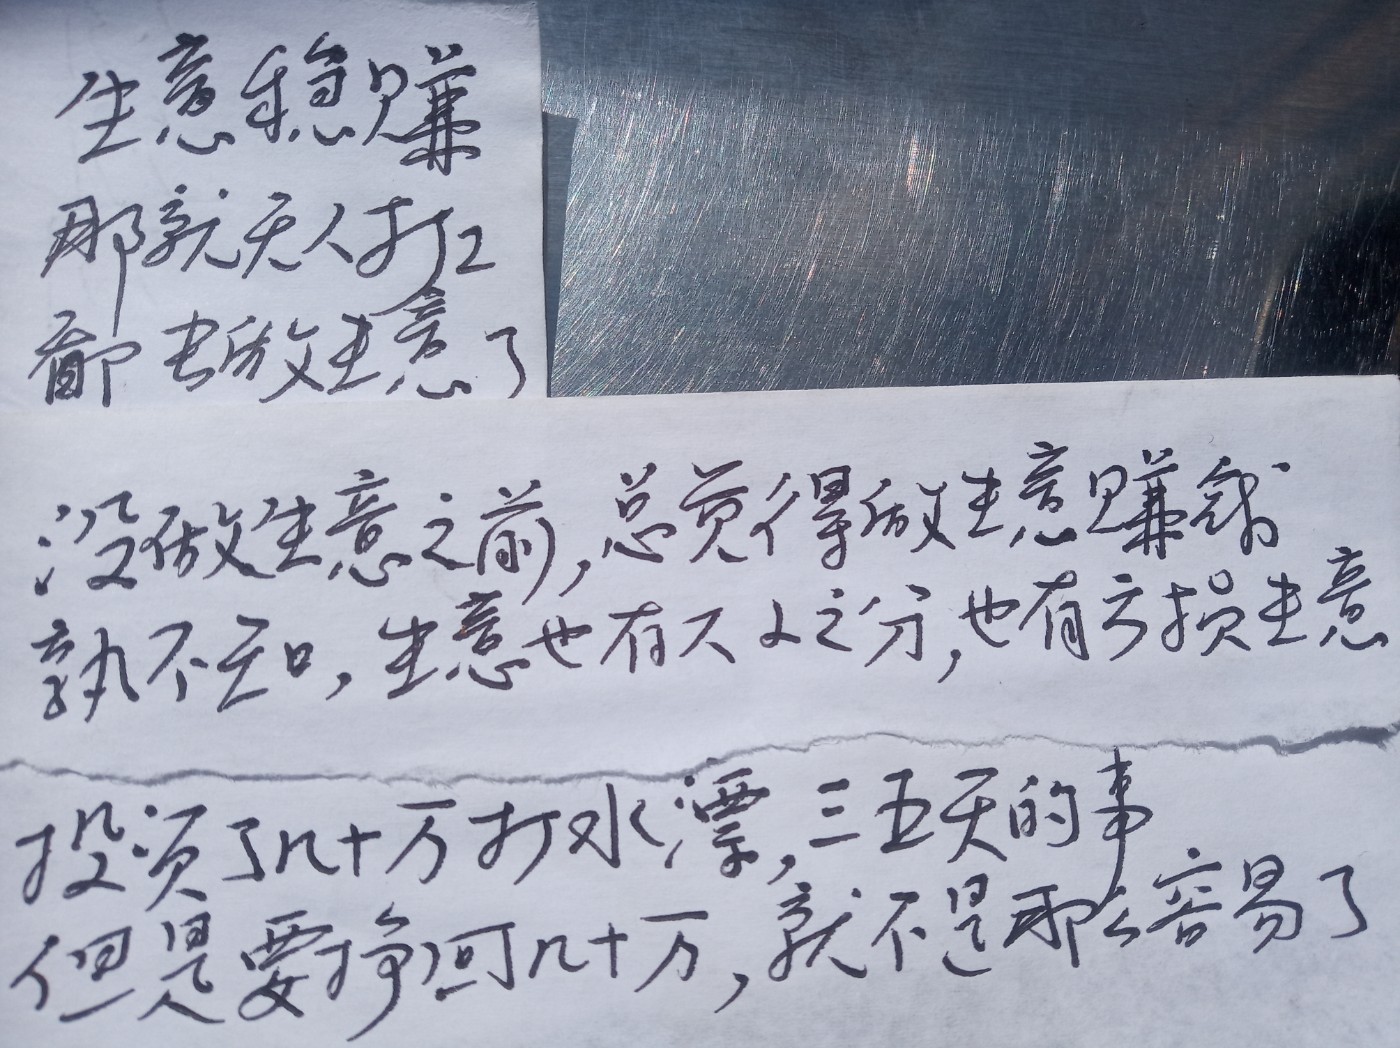 生意稳赚
那就无人打工
都去做生意了
没做生意之前,总觉得做生意赚钱
孰不知,生意也有大小之分,也有亏损生意
投资了几十万打水漂,三五天的事
但是要挣回几十万,就不是那么容易了